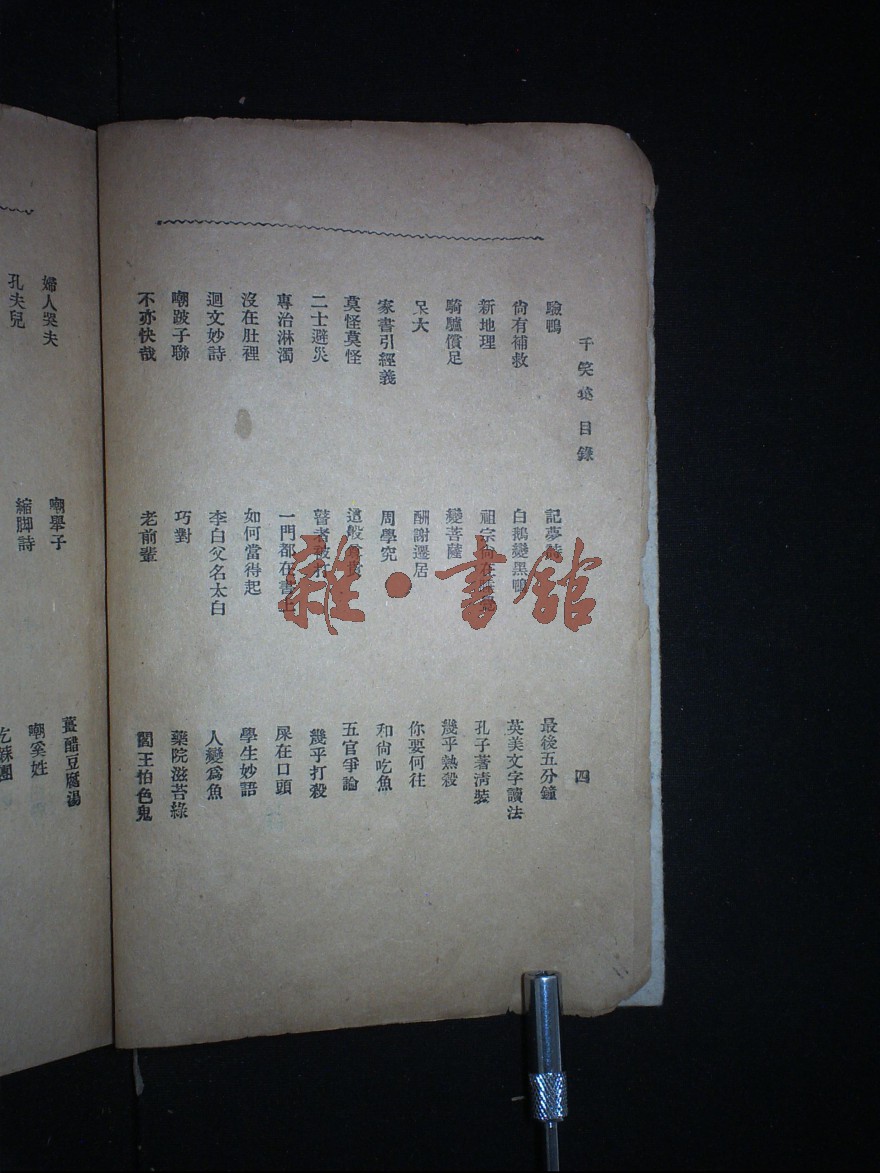 千笑 目錄
四
驗鴨
尙有補救
新地理
騎驢償足
呆大
家書引經義
莫怪莫怪
二士避災
專治淋濁
沒在肚裡
迴文妙詩
嘲跛子聯
不亦快哉
記夢
白鵝變黑鴨
祖宗尙在
變菩薩
酬謝遷居
周學究
這般
瞽者被打
一門都在書上
如何當得起
李白父名太白
巧對
老前輩
最後五分鐘
英美文字讀法
孔子著淸裝
幾乎熱殺
你要何往
和尙吃魚
五官爭論
幾乎打殺
屎在口頭
學生妙語
人變爲魚
藥院滋苔綠
閻王怕色鬼
婦人哭夫
孔夫兒
嘲舉子
縮脚詩
薑醋豆腐湯
嘲奚姓
雜·書館